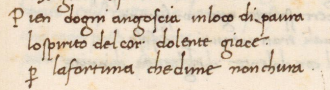 Pien dogni angoscia inloco di paura
lospirito del cor dolente giace
ꝑ lafortuna chedime non chura